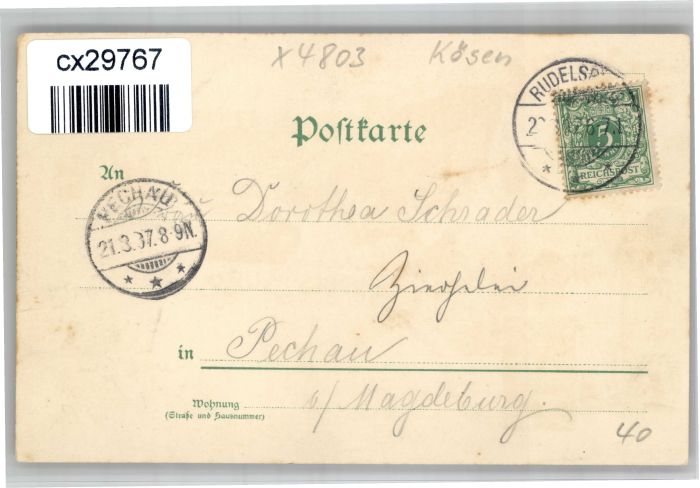 cx29767
X4803 Kösen
Postkarte
RUDELSB
5
REICHSPOST
An
PECHAU
21.3.97.8-9N.
Dorothea Schrader
in Pechau
b/ Magdeburg.
Wohnung
(Straße und Hausnummer)
40